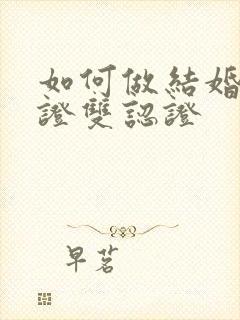 如何做結婚
證雙認證
早茗